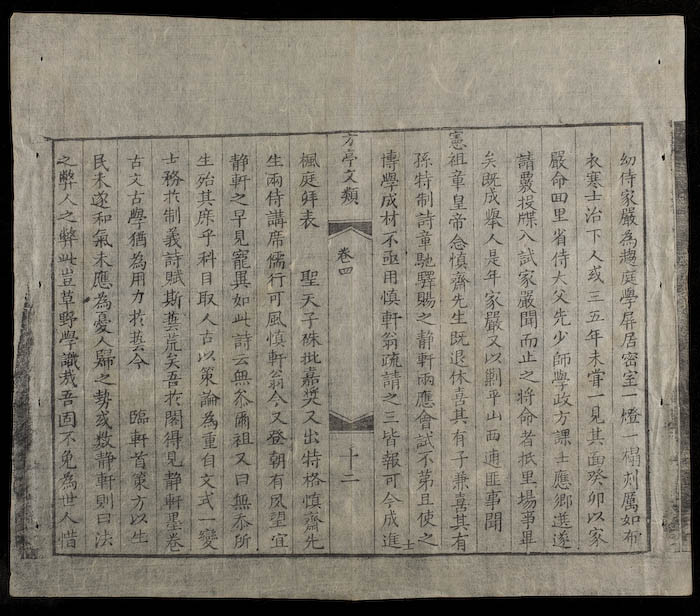 幼侍家嚴為趨庭學屏居密室一燈一榻刻厲如布
衣寒士治下人或三五年未甞一見其面癸卯以家
嚴命田里省侍大父先少師學政方課士應鄉選遂
請覆投牒入試家嚴聞而止之將命者抵里場事畢
矣既成舉人是年 家嚴又以剿平山西逋匪事聞
憲祖章皇帝念慎齋先生既退休喜其有子兼喜其有
孫特制詩章馳驛賜之靜軒兩應會試不第且使之
博學成材不亟用慎軒翁疏請之三皆報可今成進
士
方亭文類 卷四 十二
楓庭鮮表 聖天子硃批嘉奬又出特格慎齋先
生兩侍講席儒行可風慎軒翁今又登朝有夙望宜
靜軒之早見寵異如此詩云無忝爾祖又曰無忝所
生殆其庶乎科目取人古以策論為重自文式一變
士務扵制義詩賦斯蓺荒矣吾扵閣得見靜軒墨卷
古文古學猶為用力扵蓺今 臨軒首策方以生
民未遂和氣未應為憂人歸之勢或数靜軒則曰法
之弊人之弊此豈草野學讖哉吾固不免為世人惜